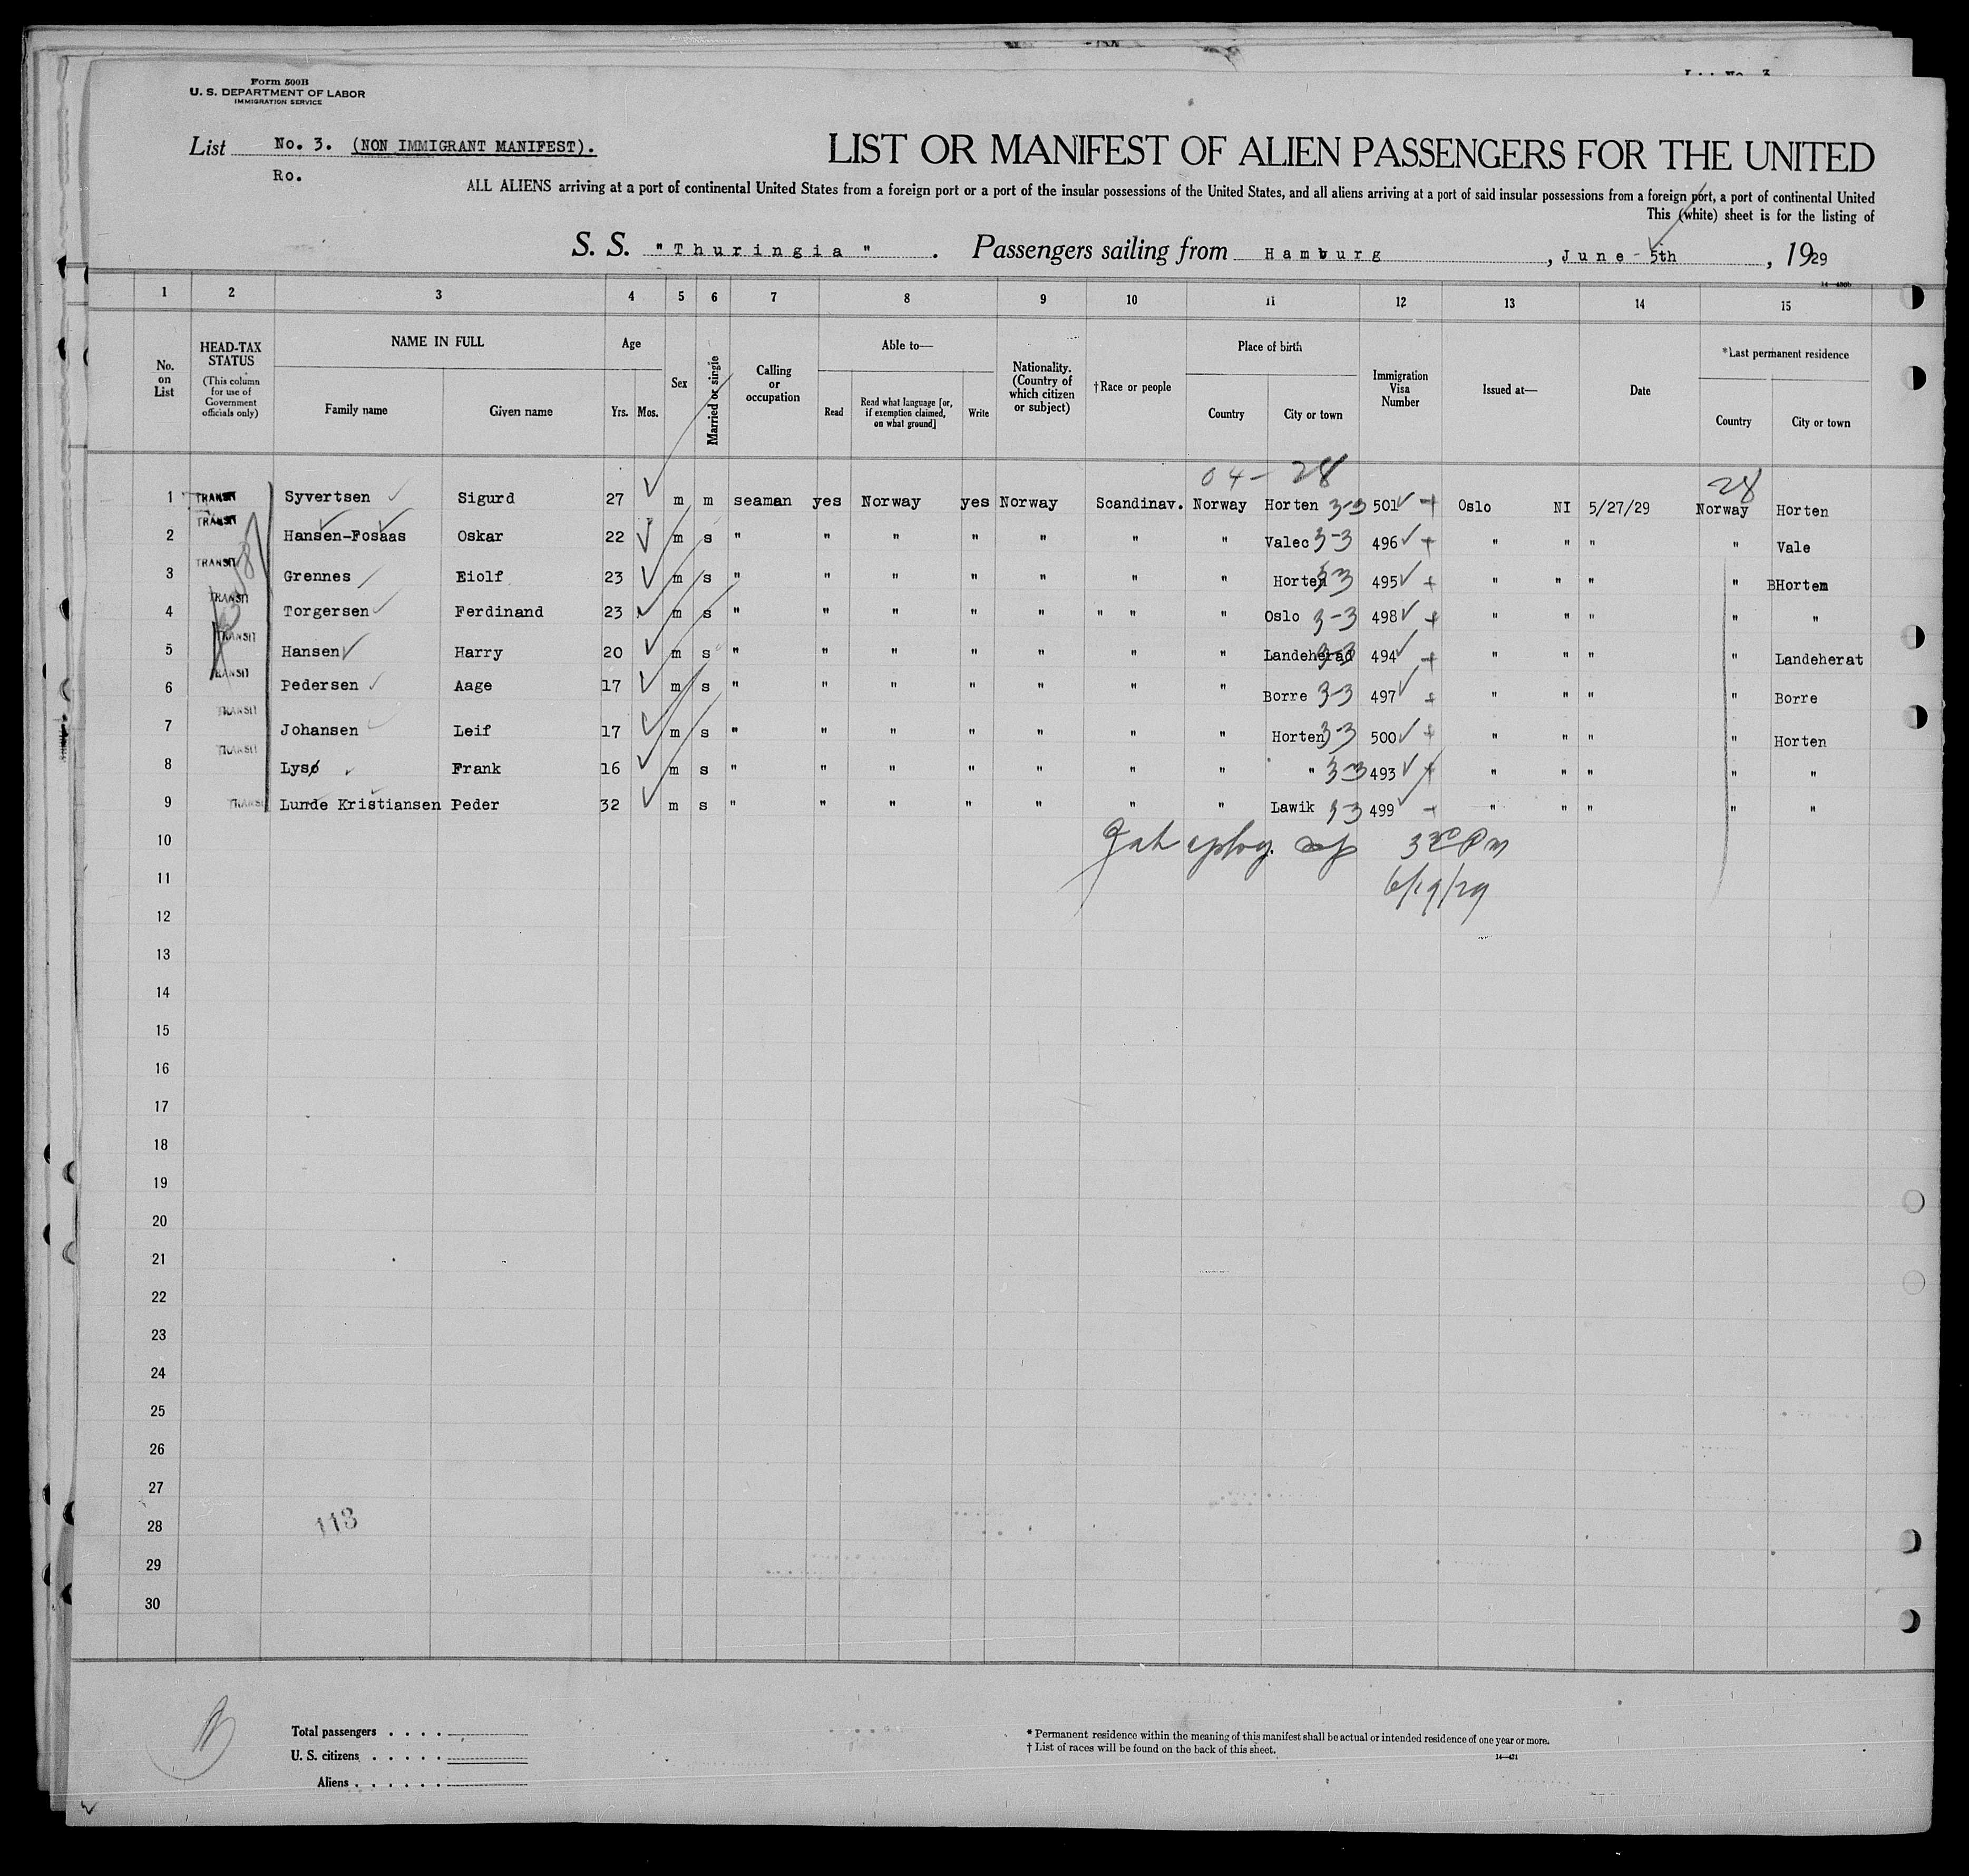 Form 500B
U. S. DEPARTMENT OF LABOR
IMMIGRATION SERVICE
List No. 3. (NON IMMIGRANT MANIFEST).
Ro.
LIST OR MANIFEST OF ALIEN PASSENGERS FOR THE UNITED
ALL ALIENS arriving at a port of continental United States from a foreign port or a port of the insular possessions of the United States, and all aliens arriving at a port of said insular possessions from a foreign port, a port of continental United
This (white) sheet is for the listing of
S. S. "Thuringia". Passengers sailing from Hamburg, June 5th, 1929
1 2 3 4 5 6 7 8 9 10 11 12 13 14 15
No. on List
HEAD-TAX STATUS (This column for use of Government officials only)
NAME IN FULL Family name Given name
Age Yrs. Mos.
Sex
Married or single
Calling or occupation
Able to— Read Read what language [or, if exemption claimed, on what ground] Write
Nationality. (Country of which citizen or subject)
†Race or people
Place of birth Country City or town
Immigration Visa Number
Issued at—
Date
*Last permanent residence Country City or town
04- 28 28
1 TRANSIT Syvertsen Sigurd 27 m m seaman yes Norway yes Norway Scandinav. Norway Horten 3-3 501 Oslo NI 5/27/29 Norway Horten
2 TRANSIT Hansen-Fosaas Oskar 22 m s " " " " " " " Valec 3-3 496 " " " " Vale
3 TRANSIT Grennes Eiolf 23 m s " " " " " " " Horten 3-3 495 " " " " BHorten
4 TRANSIT Torgersen Ferdinand 23 m s " " " " " " " " Oslo 3-3 498 " " " " "
5 TRANSIT Hansen Harry 20 m s " " " " " " " Landeherad 3-3 494 " " " " Landeherat
6 TRANSIT Pedersen Aage 17 m s " " " " " " " Borre 3-3 497 " " " " Borre
7 TRANSIT Johansen Leif 17 m s " " " " " " " Horten 3-3 500 " " " " Horten
8 TRANSIT Lysø Frank 16 m s " " " " " " " " 3-3 493 " " " " "
9 TRANSIT Lunde Kristiansen Peder 32 m s " " " " " " " Lawik 3-3 499 " " " " "
10
11 6/19/29
12
13
14
15
16
17
18
19
20
21
22
23
24
25
26
27
28 113
29
30
Total passengers . . . .
U. S. citizens . . . . .
Aliens . . . . . .
* Permanent residence within the meaning of this manifest shall be actual or intended residence of one year or more.
† List of races will be found on the back of this sheet.